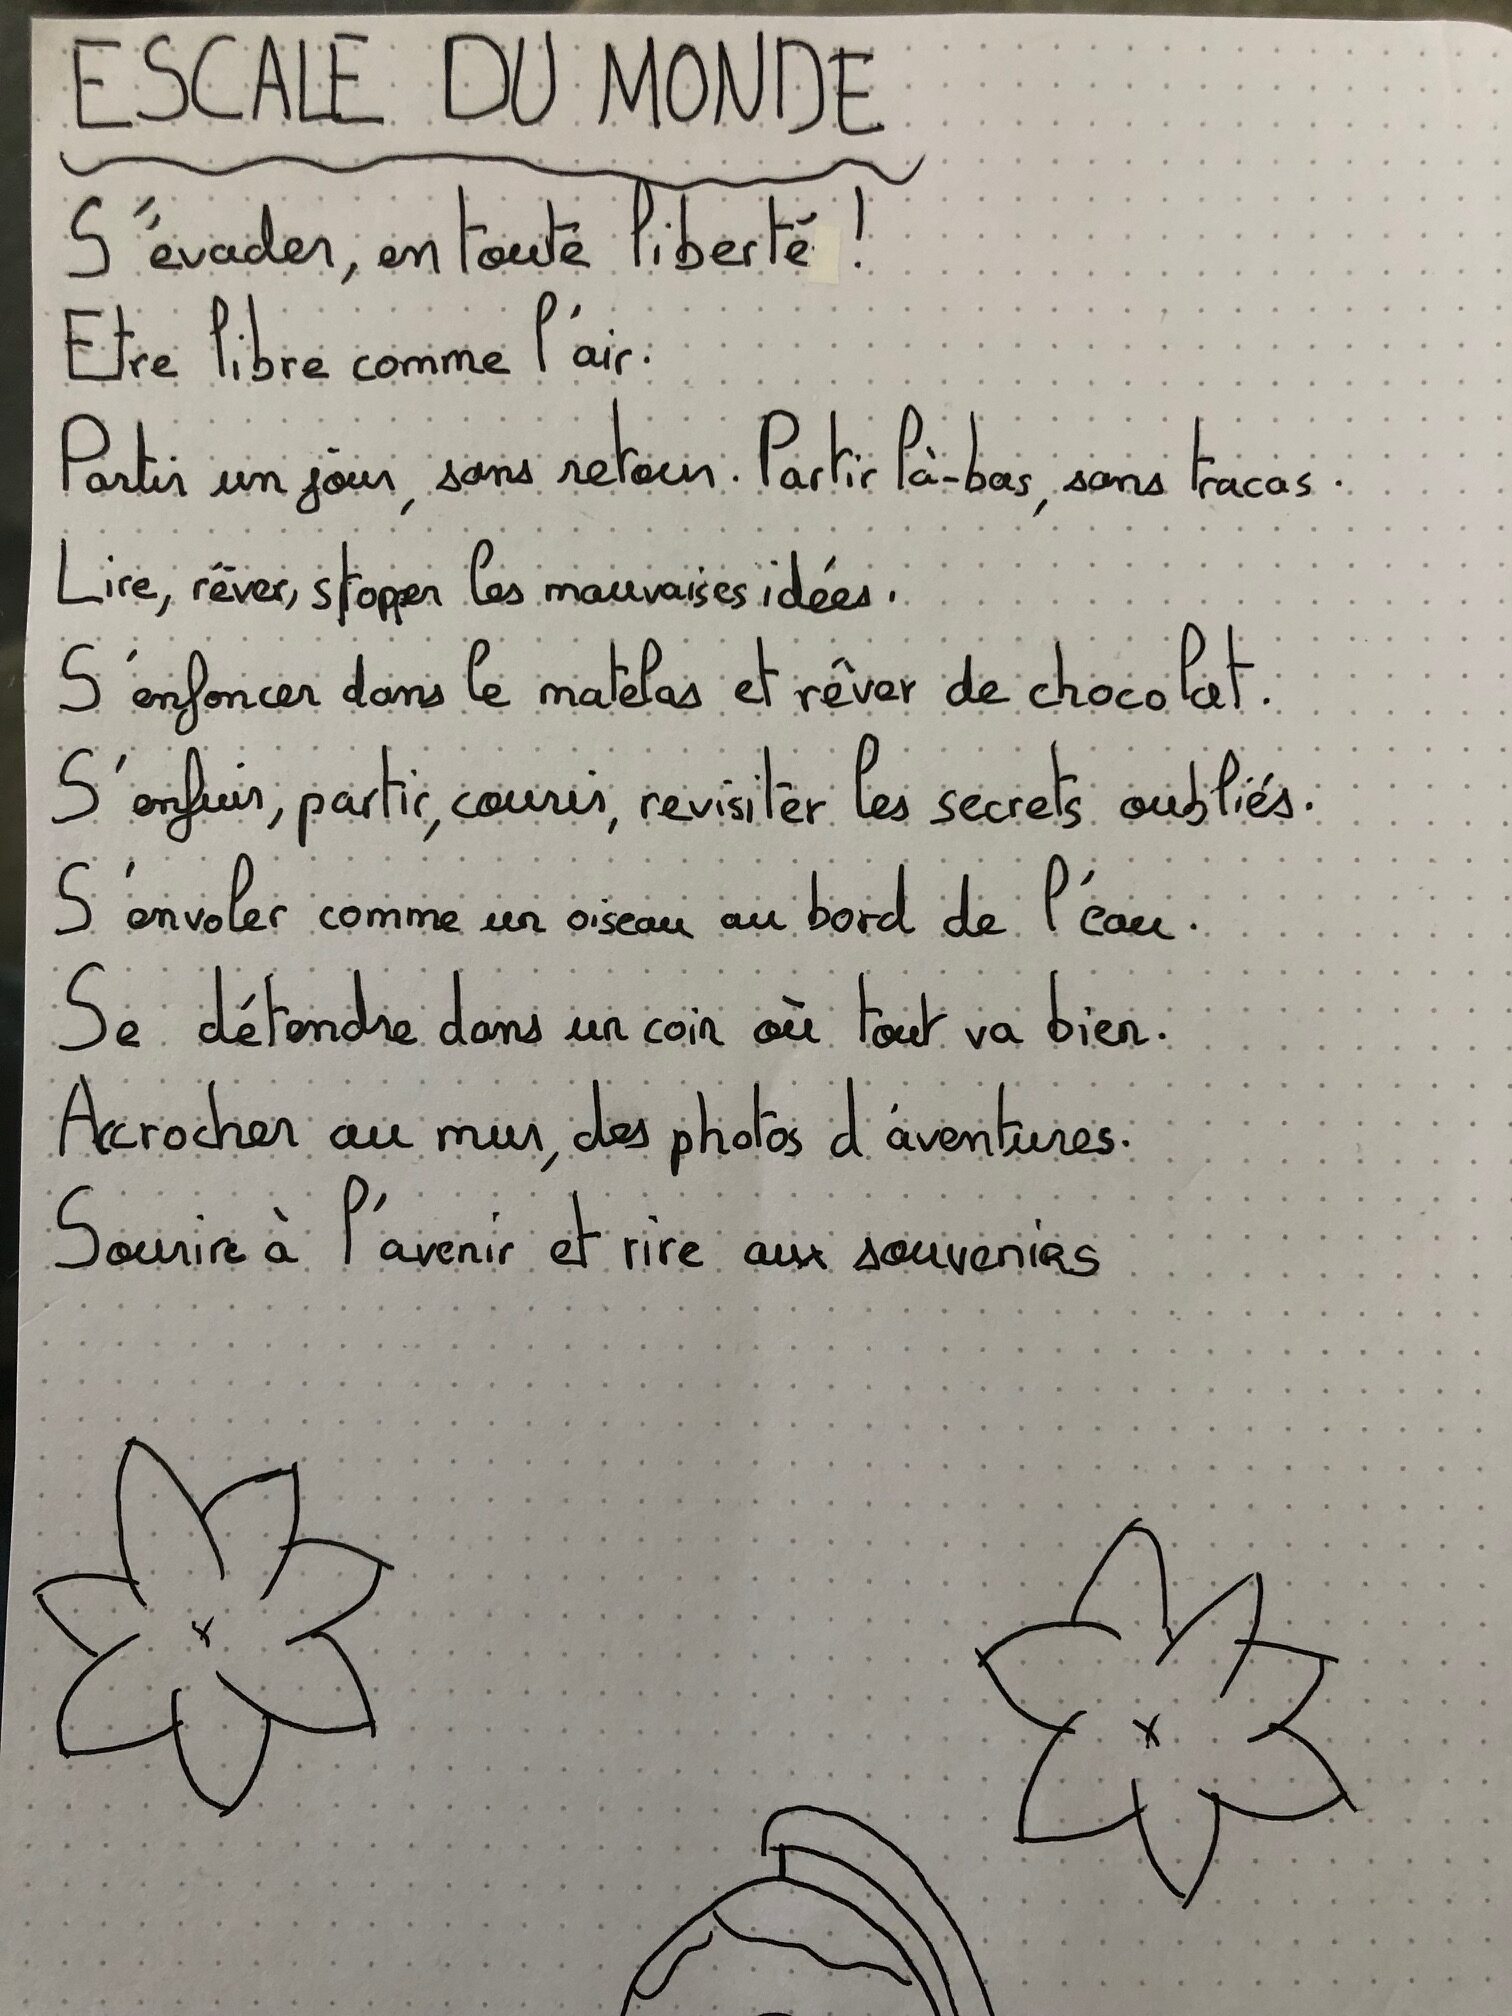 ESCALE DU MONDE
S'évader, en toute liberté !
Etre libre comme l'air.
Partir un jour, sans retour. Partir là-bas, sans tracas.
Lire, rêver, stopper les mauvaises idées.
S'enfoncer dans le matelas et rêver de chocolat.
S'enfuir, partir, courir, revisiter les secrets oubliés.
S'envoler comme un oiseau au bord de l'eau.
Se détendre dans un coin où tout va bien.
Accrocher au mur, des photos d'aventures.
Sourire à l'avenir et rire aux souvenirs